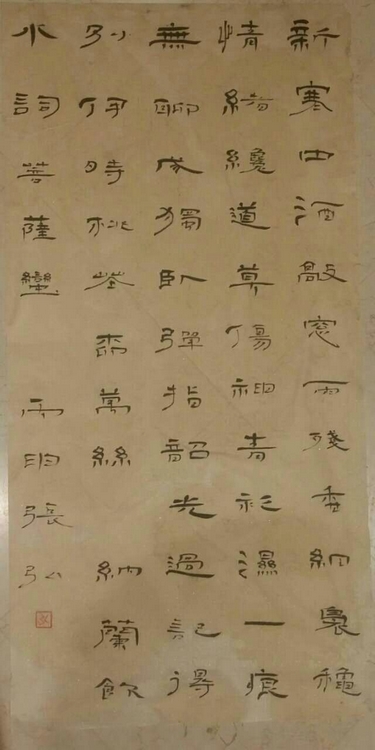 新寒中酒敲窓雨殘香細裊穐
情緒纔道莫傷神青衫濕一痕
無聊成獨臥彈指韶光過記得
別伊時桃花柳萬絲 納蘭飲
水詞菩薩蠻 丙申張弘